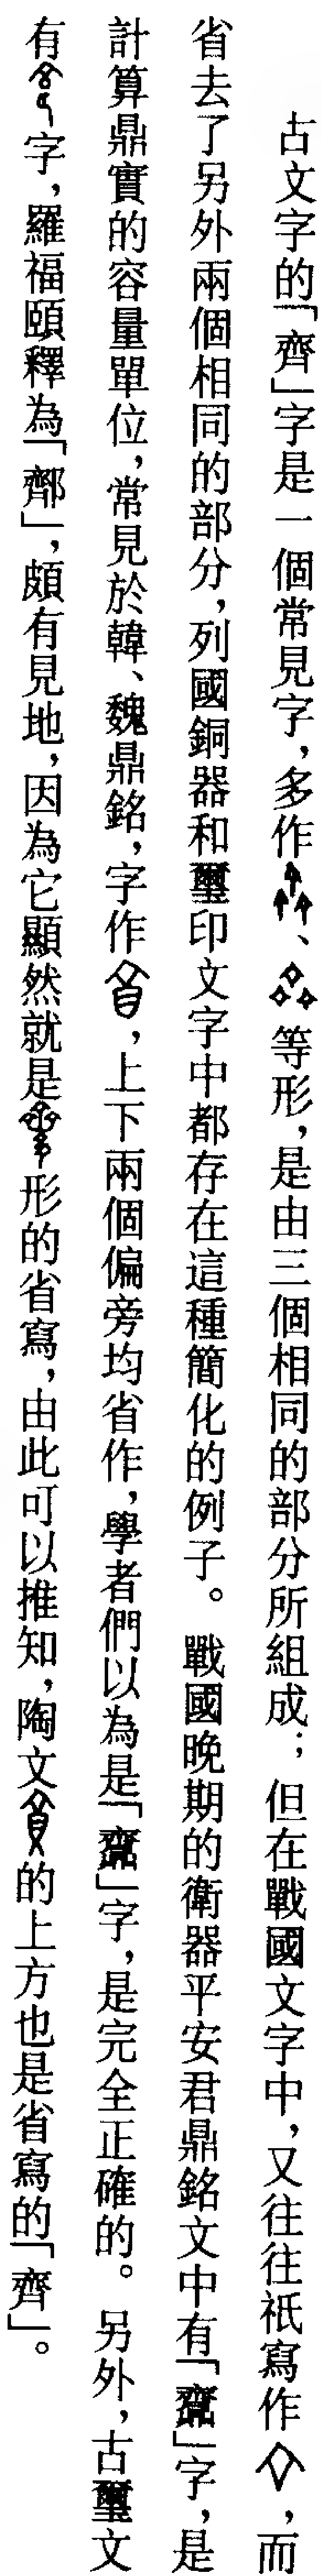 古文字的「齊」字是一個常見字，多作、等形，是由三個相同的部分所組成；但在戰國文字中，又往往祇寫作，而
省去了另外兩個相同的部分，列國銅器和璽印文字中都存在這種簡化的例子。戰國晚期的衛器平安君鼎銘文中有「」字，是
計算鼎實的容量單位，常見於韓、魏鼎銘，字作，上下兩個偏旁均省作，學者們以為是「」字，是完全正確的。另外，古璽文
有字，羅福頤釋為「」，頗有見地，因為它顯然就是形的省寫，由此可以推知，陶文的上方也是省寫的「齊」。